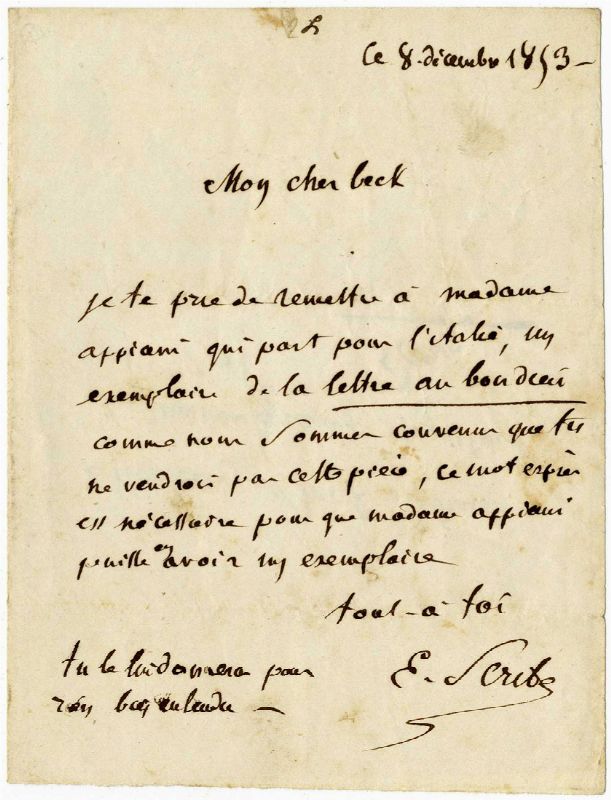 ce 8 décembre 1853 -
Mon cher beck
je te prie de remettre à madame
appiani qui part pour l'italie, un
exemplaire de la lettre au bon dieu
comme nous sommes convenus que tu
ne vendrois pas cette pièce, ce mot
est nécessaire pour que madame appiani
puisse en avoir un exemplaire
tout-à toi
E. Scribe
tu le lui donnera pour
rien bien entendu -